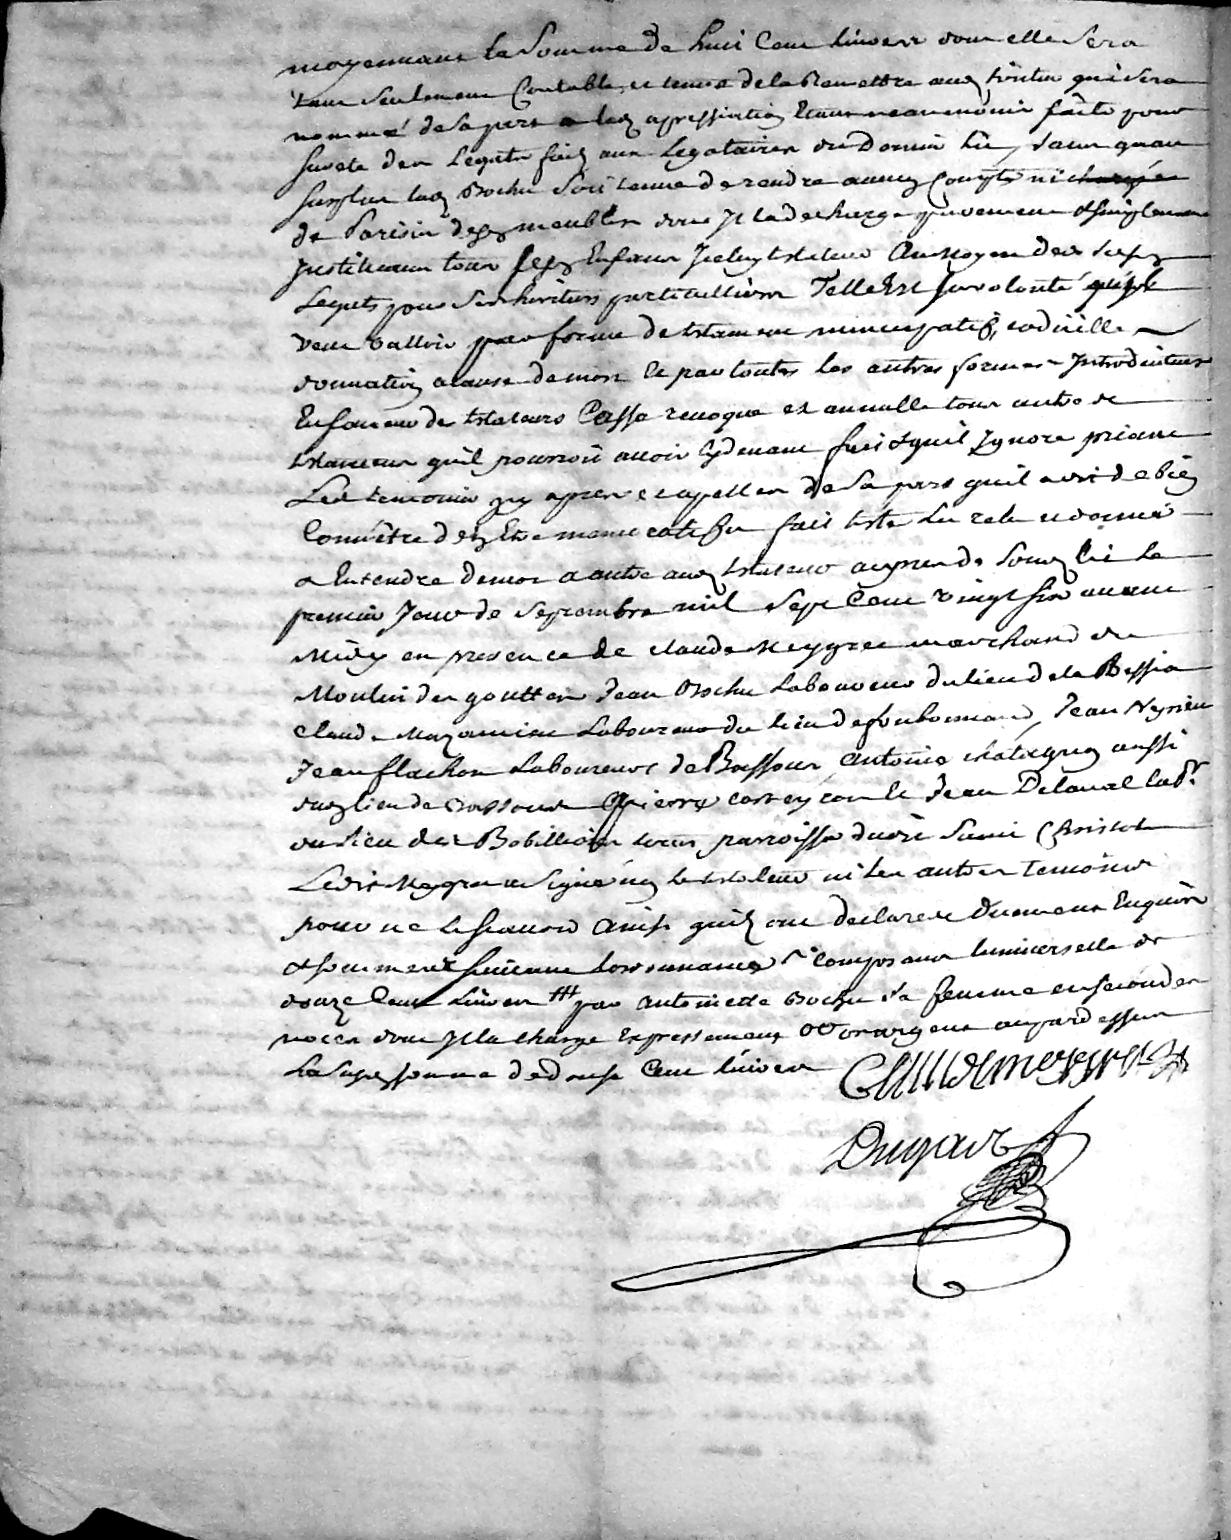 moyennant la somme de huit cent livres dont elle sera
tant seulement Contable et tenue de la Remettre aud tuteur qui sera
nommé de sa part a lad apressiation Etant neanmoins faite pour
surete des Legats faits aux Legataires
surplus lad Bochu soit tenue de rendre aucung Compte ni chargée
de saisir desd meubles dont Il la decharge purement & simplement
Instituant tous sesd Enfans Iceluy testateur Au moyen des susd
Legats pour ses heritiers particulliers Telle Est sa volonté quil
veut valloir par forme de testament nuncupatif, codicille
donnation a cause de mort Et par toutes les autres formes Introduites
En faveur des testateurs Casse revoque et annulle tous autres
testamens quil pourroit avoir cydevant fait & quil Ignore priant
Les temoins cy apres et apellés de sa part quil a dit de bien
Connêtre d'en Etre memoratifs fait leu releu et donné
a Entendre de mot a autre aud testateur led lieu le
premier Jour de Septembre mil sept Cent vingt six avant
Midy en presence de claude Meygret marchand du
Moulin des gouttes Jean Bochu Laboureur du lieu de la Bessia
Claude Laboureur du lieu de Jean Neyrieu
Jean flachon Laboureur de Bassour, Antoine chatagnon aussi
dud lieu de Bassour & pierre Jean Delaval Labr
du lieu des Bobillions tous parroisse dudit Saint Christol
Ledit Meygret a signé non le testateur ni les autres temoins
pour ne le scavoir Ainsi quils ont declaré Duement Enquis
& sommés suivant lordonnance composant luniverselle de
douze Cent Livres par Antoinette Bochu sa femme en secondes
noces dont Il la charge Expressement en argent au pardessus
La susd somme de douse Cent livres Claude meygret
Dugas